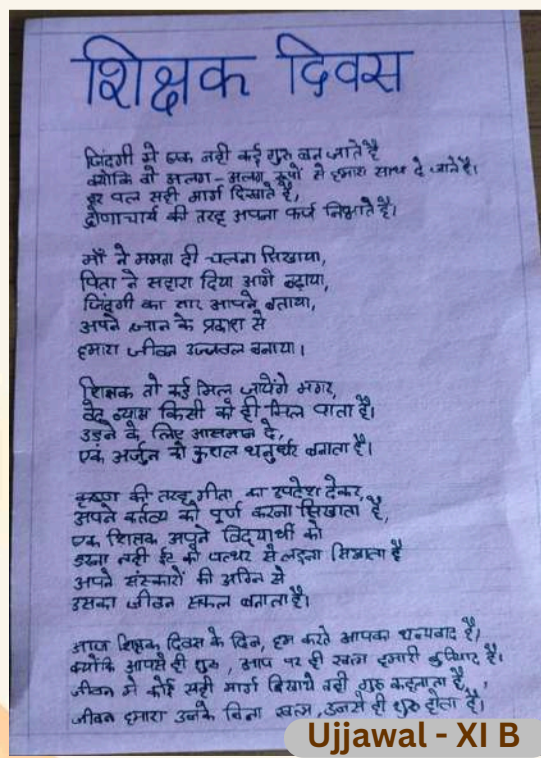 शिक्षक दिवस
जिंदगी मे एक नही कई गुरु बन जाते है
क्योकि वो अलग-अलग रूपों से हमारा साथ दे जाते है।
हर पल सही मार्ग दिखाते है,
द्रोणाचार्य की तरह अपना फर्ज निभाते है।
माँ ने ममता दी चलना सिखाया,
पिता ने सहारा दिया आगे बढ़ाया,
जिंदगी का सार आपने बताया,
अपने ज्ञान के प्रकाश से
हमारा जीवन उज्जवल बनाया।
शिक्षक तो कई मिल जायेंगे मगर,
वेद व्यास किसी को ही मिल पाता है।
उड़ने के लिए आसमान दे,
एक अर्जुन को कुशल धनुर्धर बनाता है।
कृष्ण की तरह गीता का उपदेश देकर,
अपने कर्तव्य को पूर्ण करना सिखाता है,
एक शिक्षक अपने विद्यार्थी को
डरना नही ईट को पत्थर से लड़ना सिखाता है
अपने संस्कारों की अग्नि से
उसका जीवन सफल बनाता है।
आज शिक्षक दिवस के दिन, हम करते आपका धन्यवाद है,
क्योंकि आपसे ही शुरु, आप पर ही खत्म हमारी बुनियाद है।
जीवन मे कोई सही मार्ग दिखाये वही गुरु कहलाता है,
जीवन हमारा उनके बिना खत्म, उनसे ही शुरु होता है।
Ujjawal - XI B